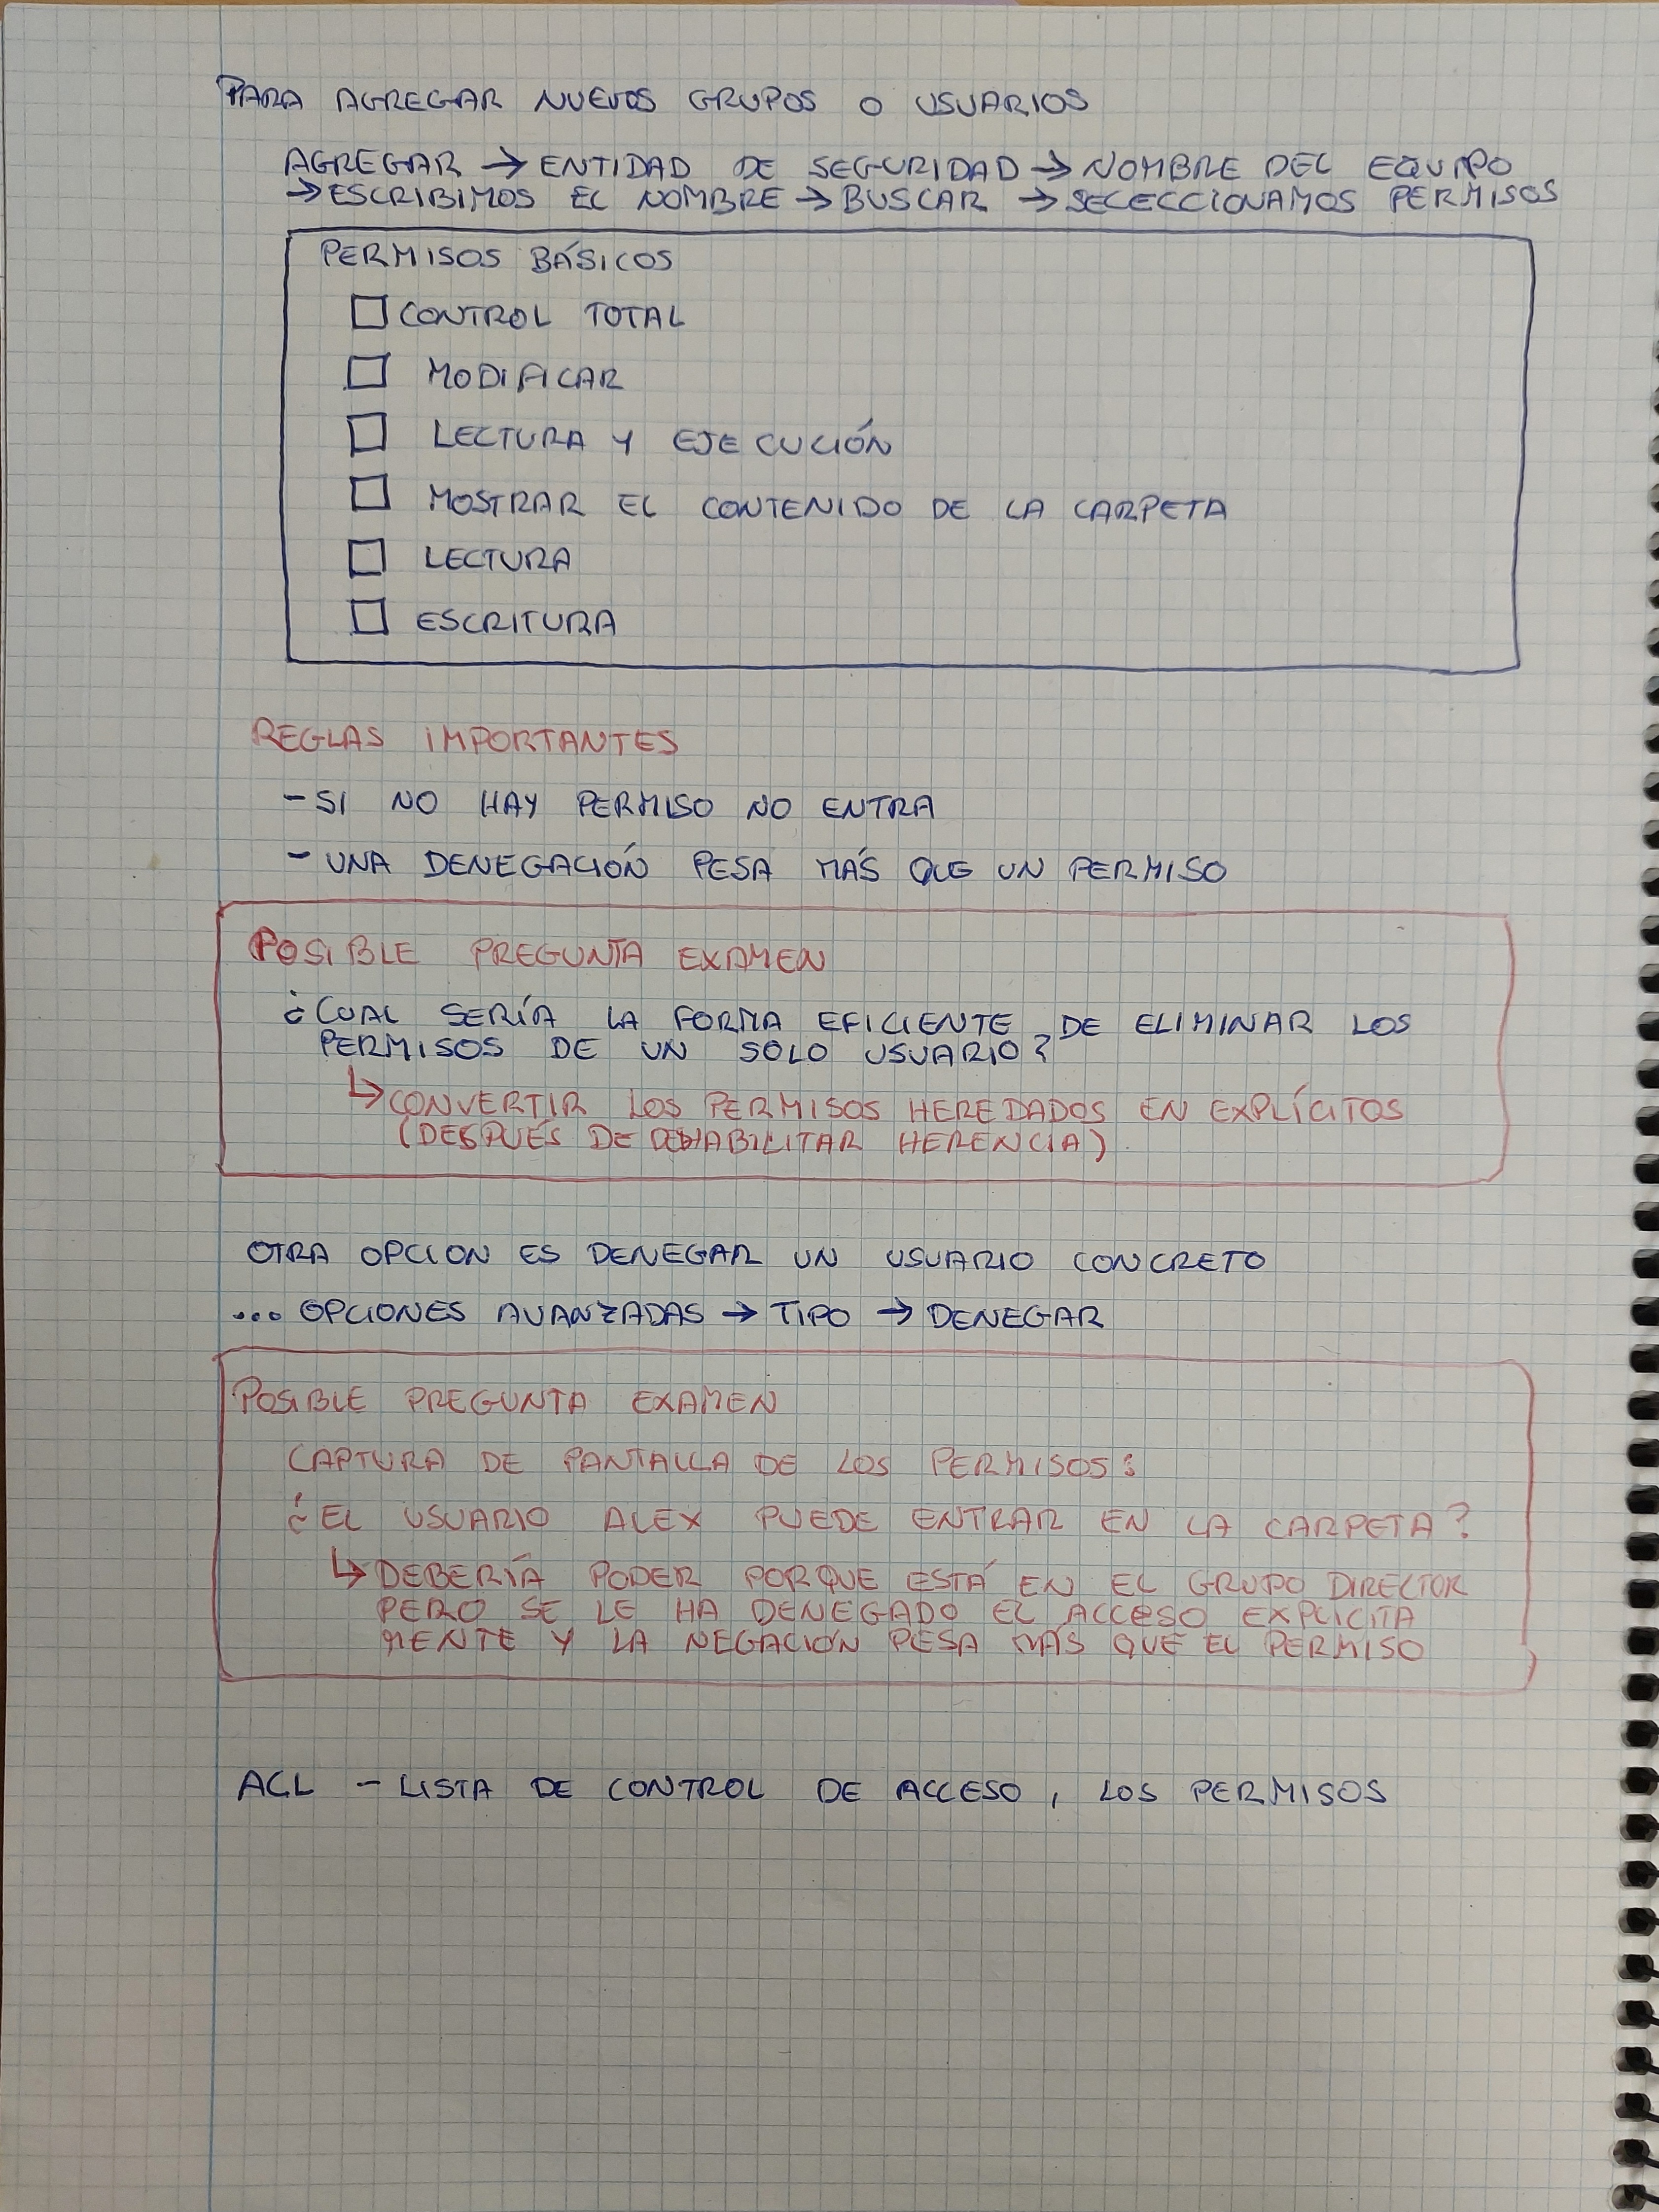 PARA AGREGAR NUEVOS GRUPOS O USUARIOS
AGREGAR → ENTIDAD DE SEGURIDAD → NOMBRE DEL EQUIPO
→ ESCRIBIMOS EL NOMBRE → BUSCAR → SELECCIONAMOS PERMISOS
PERMISOS BÁSICOS
☐ CONTROL TOTAL
☐ MODIFICAR
☐ LECTURA Y EJECUCIÓN
☐ MOSTRAR EL CONTENIDO DE LA CARPETA
☐ LECTURA
☐ ESCRITURA
REGLAS IMPORTANTES
- SI NO HAY PERMISO NO ENTRA
- UNA DENEGACIÓN PESA MÁS QUE UN PERMISO
POSIBLE PREGUNTA EXAMEN
¿CUAL SERÍA LA FORMA EFICIENTE DE ELIMINAR LOS
PERMISOS DE UN SOLO USUARIO?
↳ CONVERTIR LOS PERMISOS HEREDADOS EN EXPLÍCITOS
(DESPUÉS DE DESHABILITAR HERENCIA)
OTRA OPCION ES DENEGAR UN USUARIO CONCRETO
... OPCIONES AVANZADAS → TIPO → DENEGAR
POSIBLE PREGUNTA EXAMEN
CAPTURA DE PANTALLA DE LOS PERMISOS:
¿EL USUARIO ALEX PUEDE ENTRAR EN LA CARPETA?
↳ DEBERÍA PODER PORQUE ESTÁ EN EL GRUPO DIRECTOR
PERO SE LE HA DENEGADO EL ACCESO EXPLICITA
MENTE Y LA NEGACIÓN PESA MÁS QUE EL PERMISO
ACL - LISTA DE CONTROL DE ACCESO, LOS PERMISOS